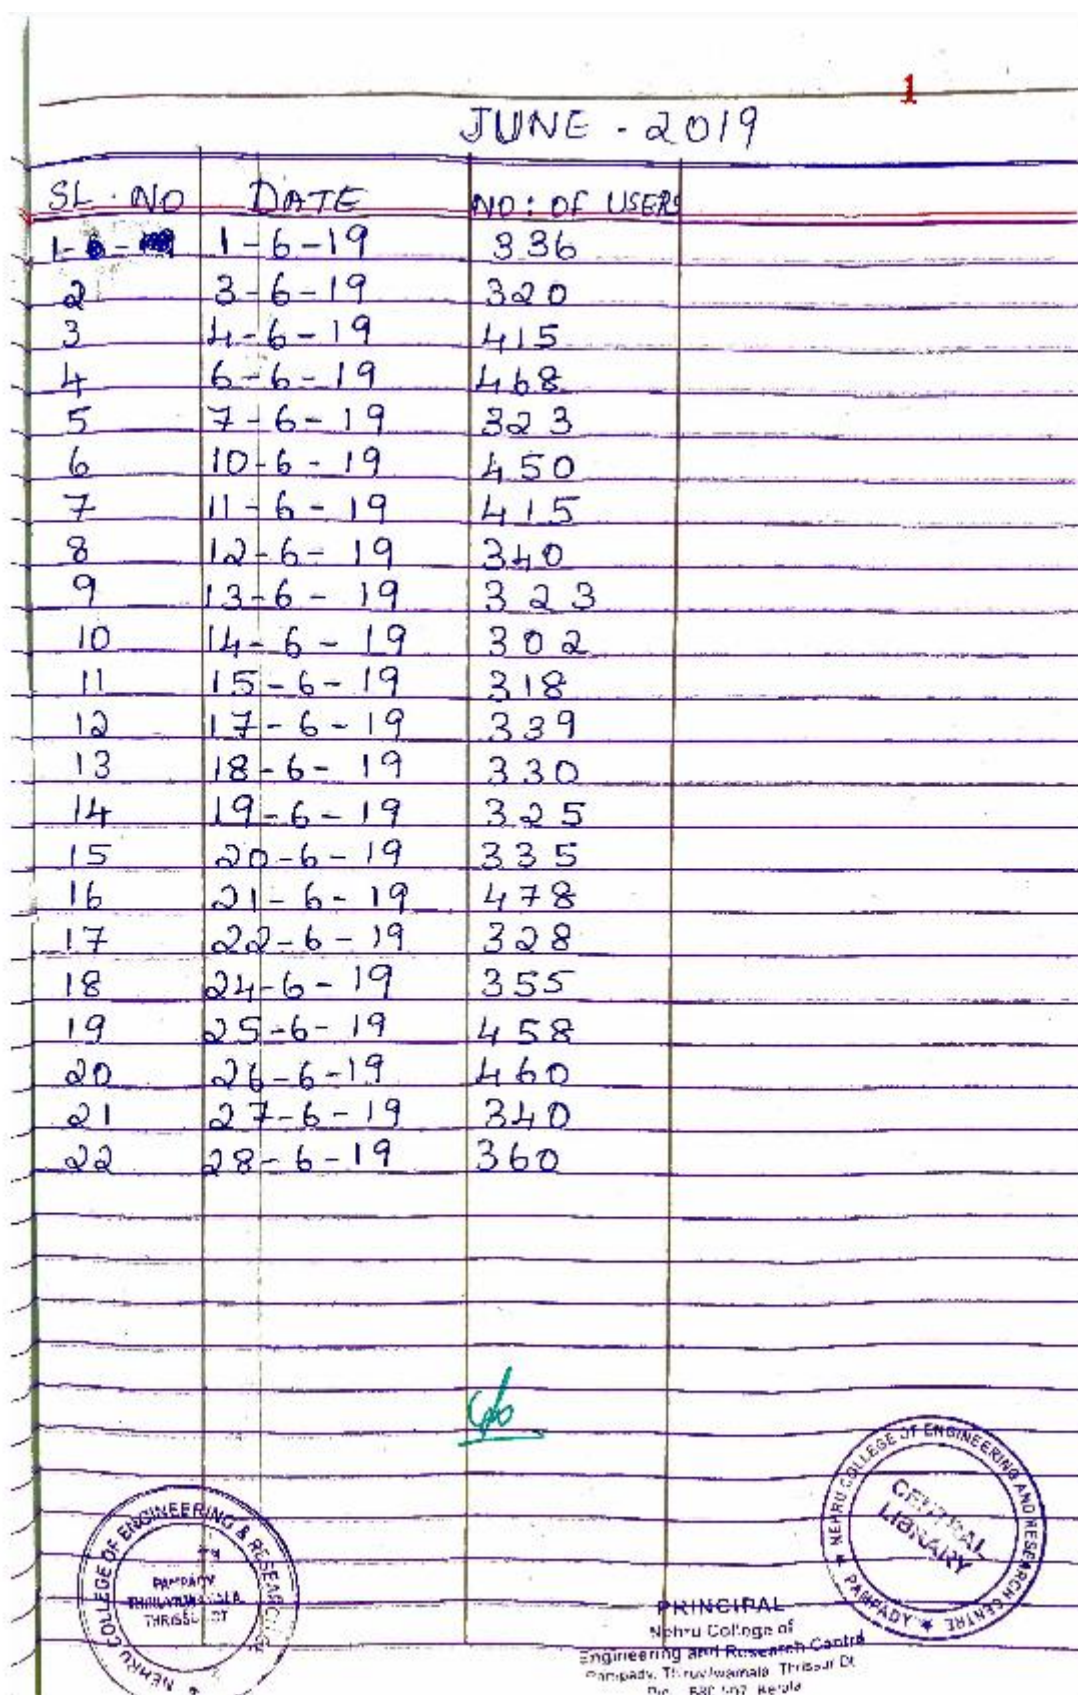 1
JUNE - 2019
SL. NO DATE NO: OF USERS
1 1-6-19 336
2 3-6-19 320
3 4-6-19 415
4 6-6-19 468
5 7-6-19 323
6 10-6-19 450
7 11-6-19 415
8 12-6-19 340
9 13-6-19 323
10 14-6-19 302
11 15-6-19 318
12 17-6-19 339
13 18-6-19 330
14 19-6-19 325
15 20-6-19 335
16 21-6-19 478
17 22-6-19 328
18 24-6-19 355
19 25-6-19 458
20 26-6-19 460
21 27-6-19 340
22 28-6-19 360
NEHRU COLLEGE OF ENGINEERING AND RESEARCH CENTRE
CENTRAL
LIBRARY
★ PAMPADY ★
NEHRU COLLEGE OF ENGINEERING & RESEARCH
PAMPADY
THRISSUR DT
PRINCIPAL
Nehru College of
Engineering and Research Centre
Pampady, Thiruvilwamala, Thrissur Dt
Kerala